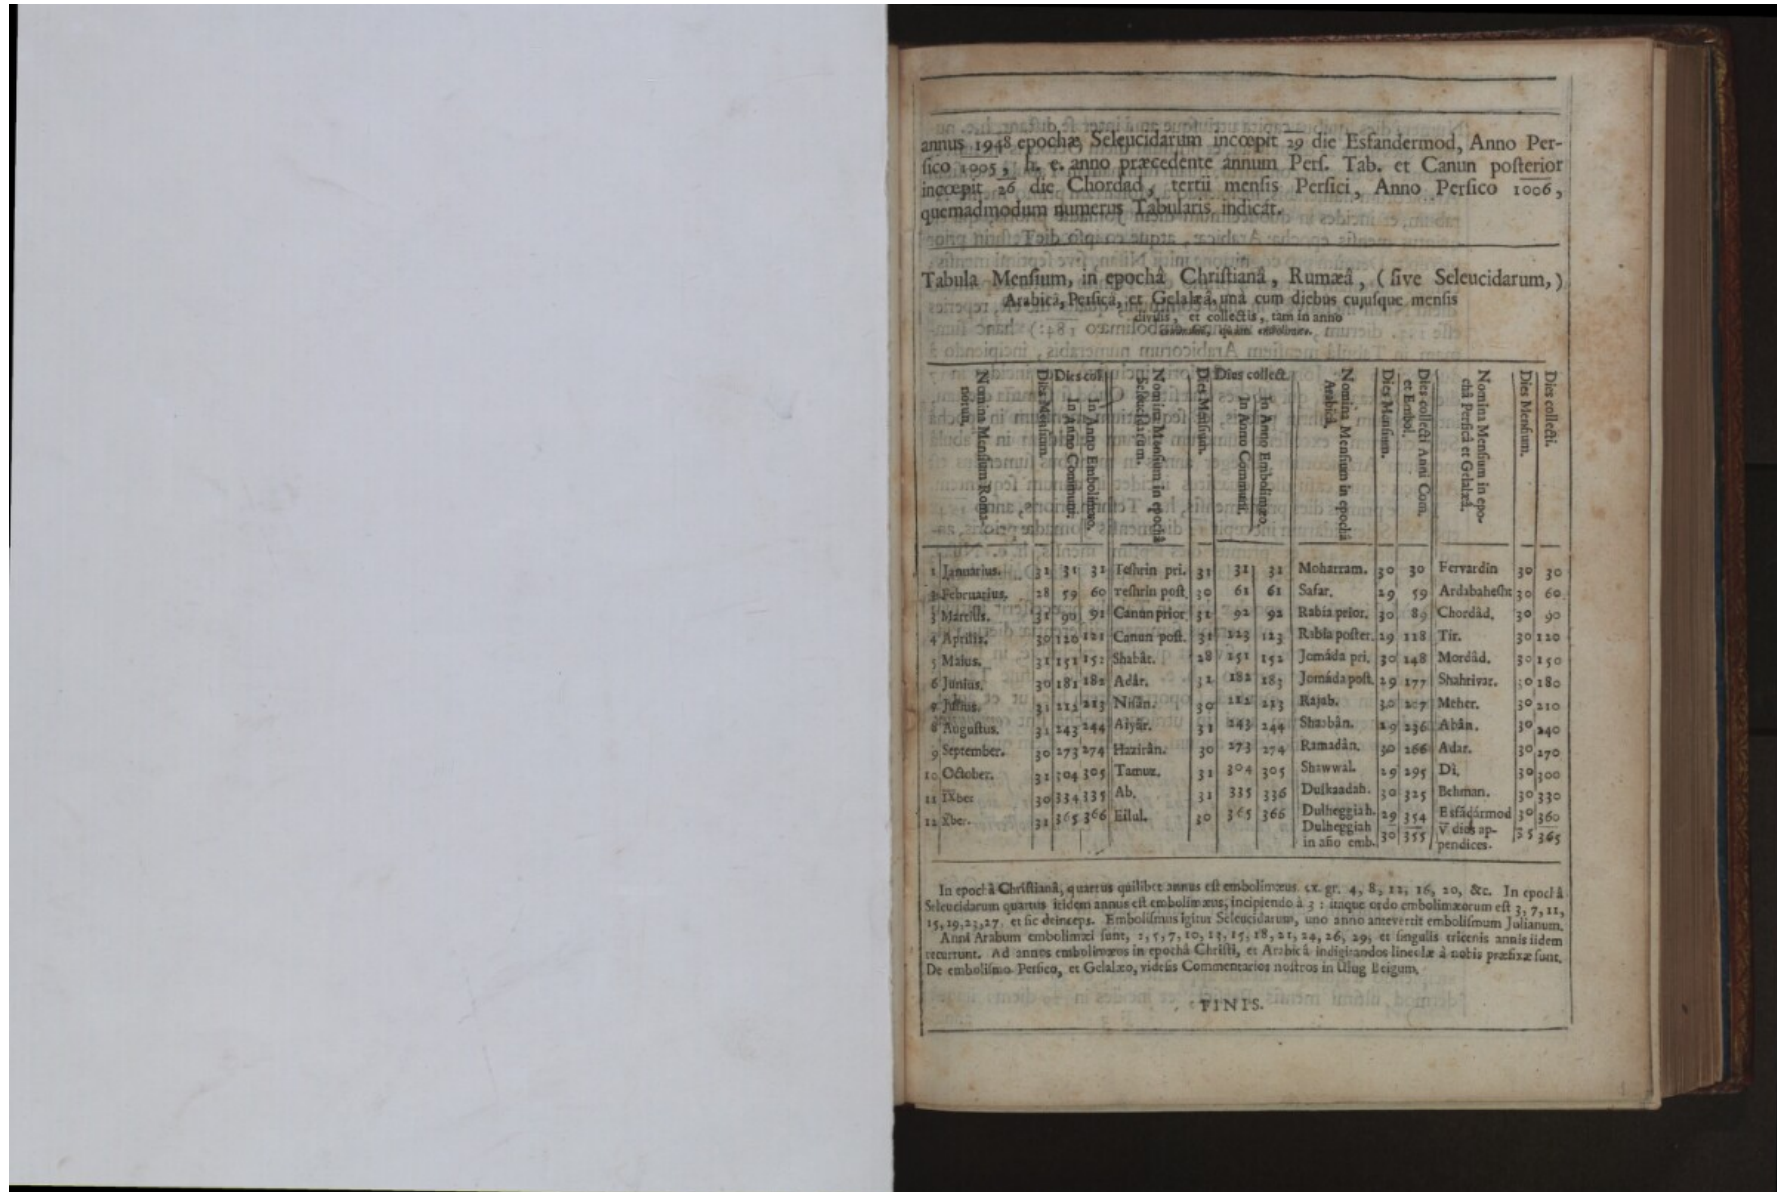 annus 1948 epochæ Seleucidarum incœpit 29 die Esfandermod, Anno Per-
sico 1005, h. e. anno præcedente annum Pers. Tab. et Canun posterior
incœpit 26 die Chordad, tertii mensis Persici, Anno Persico 1006,
quemadmodum numerus Tabularis indicat.
Tabula Mensium, in epochâ Christianâ, Rumæâ, (sive Seleucidarum,)
Arabicâ, Persicâ, et Gelalæâ, unâ cum diebus cujusque mensis
divisis, et collectis, tam in anno
communi, quàm embolimæo.
Nomina Mensium Roma-
norum.
Dies Mensium.
Dies col
In Anno Communi.
In Anno Embolimæo.
Nomina Mensium in epochâ
Seleucidarum.
Dies Mensium.
Dies collect.
In Anno Communi.
In Anno Embolimæo.
Nomina Mensium in epochâ
Arabicâ.
Dies Mensium.
Dies collecti Anni Com.
et Embol.
Nomina Mensium in epo-
châ Persicâ et Gelalæâ.
Dies Mensium.
Dies collecti.
1 Januarius. 31 31 31 Teshrin pri. 31 31 31 Moharram. 30 30 Fervardin 30 30
2 Februarius. 28 59 60 Teshrin post. 30 61 61 Safar. 29 59 Ardabahesht 30 60
3 Martius. 31 90 91 Canun prior 31 92 92 Rabia prior. 30 89 Chordâd. 30 90
4 Aprilis. 30 120 121 Canun post. 31 123 123 Rabia poster. 29 118 Tir. 30 120
5 Maius. 31 151 152 Shabât. 28 151 152 Jomáda pri. 30 148 Mordâd. 30 150
6 Junius. 30 181 182 Adâr. 31 182 183 Jomáda post. 29 177 Shahrivar. 30 180
7 Julius. 31 212 213 Nisân. 30 212 213 Rajab. 30 207 Meher. 30 210
8 Augustus. 31 243 244 Aiyâr. 31 243 244 Shaabân. 29 236 Abân. 30 240
9 September. 30 273 274 Hazirân. 30 273 274 Ramadân. 30 266 Adar. 30 270
10 October. 31 304 305 Tamuz. 31 304 305 Shawwal. 29 295 Di. 30 300
11 IXber 30 334 335 Ab. 31 335 336 Dulkaadah. 30 325 Behman. 30 330
12 Xber. 31 365 366 Eilul. 30 365 366 Dulheggiah. 29 354 Esfâdármod 30 360
Dulheggiah in año emb. 30 355 V dies ap-
pendices. 35 365
In epochâ Christianâ, quartus quilibet annus est embolimæus. ex. gr. 4, 8, 12, 16, 20, &c. In epochâ
Seleucidarum quartus itidem annus est embolimæus, incipiendo à 3 : itaque ordo embolimæorum est 3, 7, 11,
15, 19, 23, 27, et sic deinceps. Embolismus igitur Seleucidarum, uno anno antevertit embolismum Julianum.
Anni Arabum embolimæi sunt, 2, 5, 7, 10, 13, 15, 18, 21, 24, 26, 29, et singulis tricenis annis iidem
recurrunt. Ad annos embolimæos in epochâ Christi, et Arabicâ indigitandos lineolæ à nobis præfixæ sunt.
De embolismo Persico, et Gelalæo, videsis Commentarios nostros in Ulug Beigum.
FINIS.